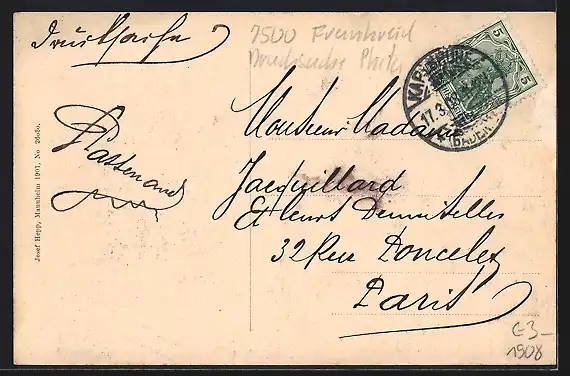 Drucksache
7500 Frankreich
KARLSRUHE
17.3.
(BADEN)
5
5
Monsieur Madame
Jacquillard
Et leurs Demoiselles
32 Rue Poncelet
Paris
Josef Hepp, Mannheim 1901, No 26080.
€3-
1908